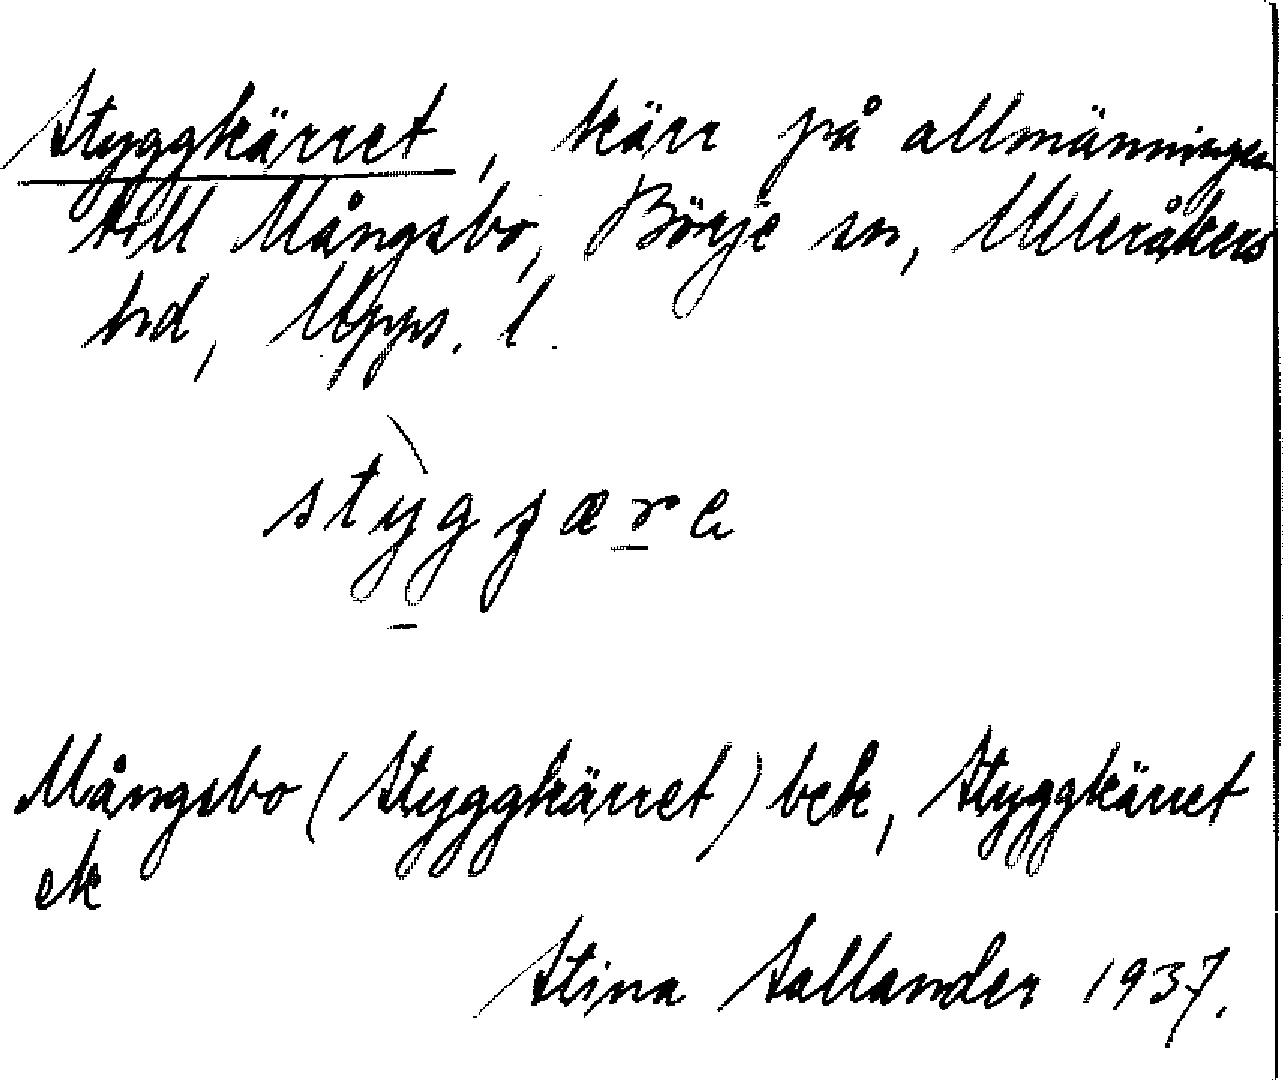 Styggkärret, kärr på allmänningen
till Mångsbo, Börje sn, Ulleråkers
hd, Upps. l.
Mångsbo (Styggkärret) bek, Styggkärret
ek
Stina Sallander 1937.